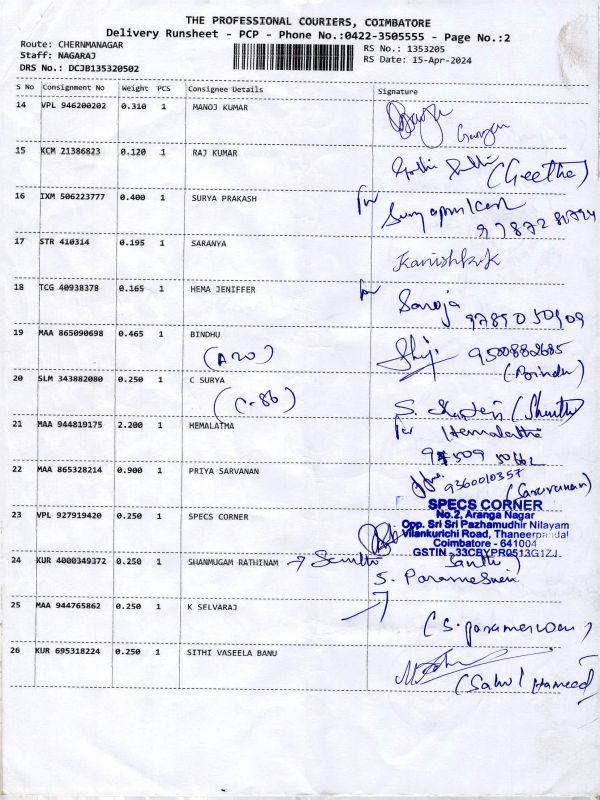 THE PROFESSIONAL COURIERS, COIMBATORE
Delivery Runsheet - PCP - Phone No.:0422-3505555 - Page No.:2
Route: CHERNMANAGAR
RS No.: 1353205
Staff: NAGARAJ
RS Date: 15-Apr-2024
DRS No.: DCJB135320502
S No Consignment No Weight PCS Consignee Details Signature
14 VPL 946200202 0.310 1 MANOJ KUMAR
15 KCM 21386823 0.120 1 RAJ KUMAR
(Geetha)
16 IXM 506223777 0.400 1 SURYA PRAKASH
for Suryaprakash
17 STR 410314 0.195 1 SARANYA
Kanishkk
18 TCG 40938378 0.165 1 HEMA JENIFFER
for Saroja
9789050909
19 MAA 865090698 0.465 1 BINDHU
Shiji
(A20)
(Bindu)
20 SLM 343882080 0.250 1 C SURYA
(C-86)
21 MAA 944819175 2.200 1 HEMALATMA
for Hemalatha
22 MAA 865328214 0.900 1 PRIYA SARVANAN
9360010357
(Saravanan)
23 VPL 927919420 0.250 1 SPECS CORNER
SPECS CORNER
No.2, Aranga Nagar
Opp. Sri Sri Pazhamudhir Nilayam
Vilankurichi Road, Thaneerpandal
Coimbatore - 641004
GSTIN : 33CBYPR0513G1ZJ
24 KUR 4000349372 0.250 1 SHANMUGAM RATHINAM
S. Parameswari
25 MAA 944765862 0.250 1 K SELVARAJ
(S. parameswari)
26 KUR 695318224 0.250 1 SITHI VASEELA BANU
(Sahul Hameed)